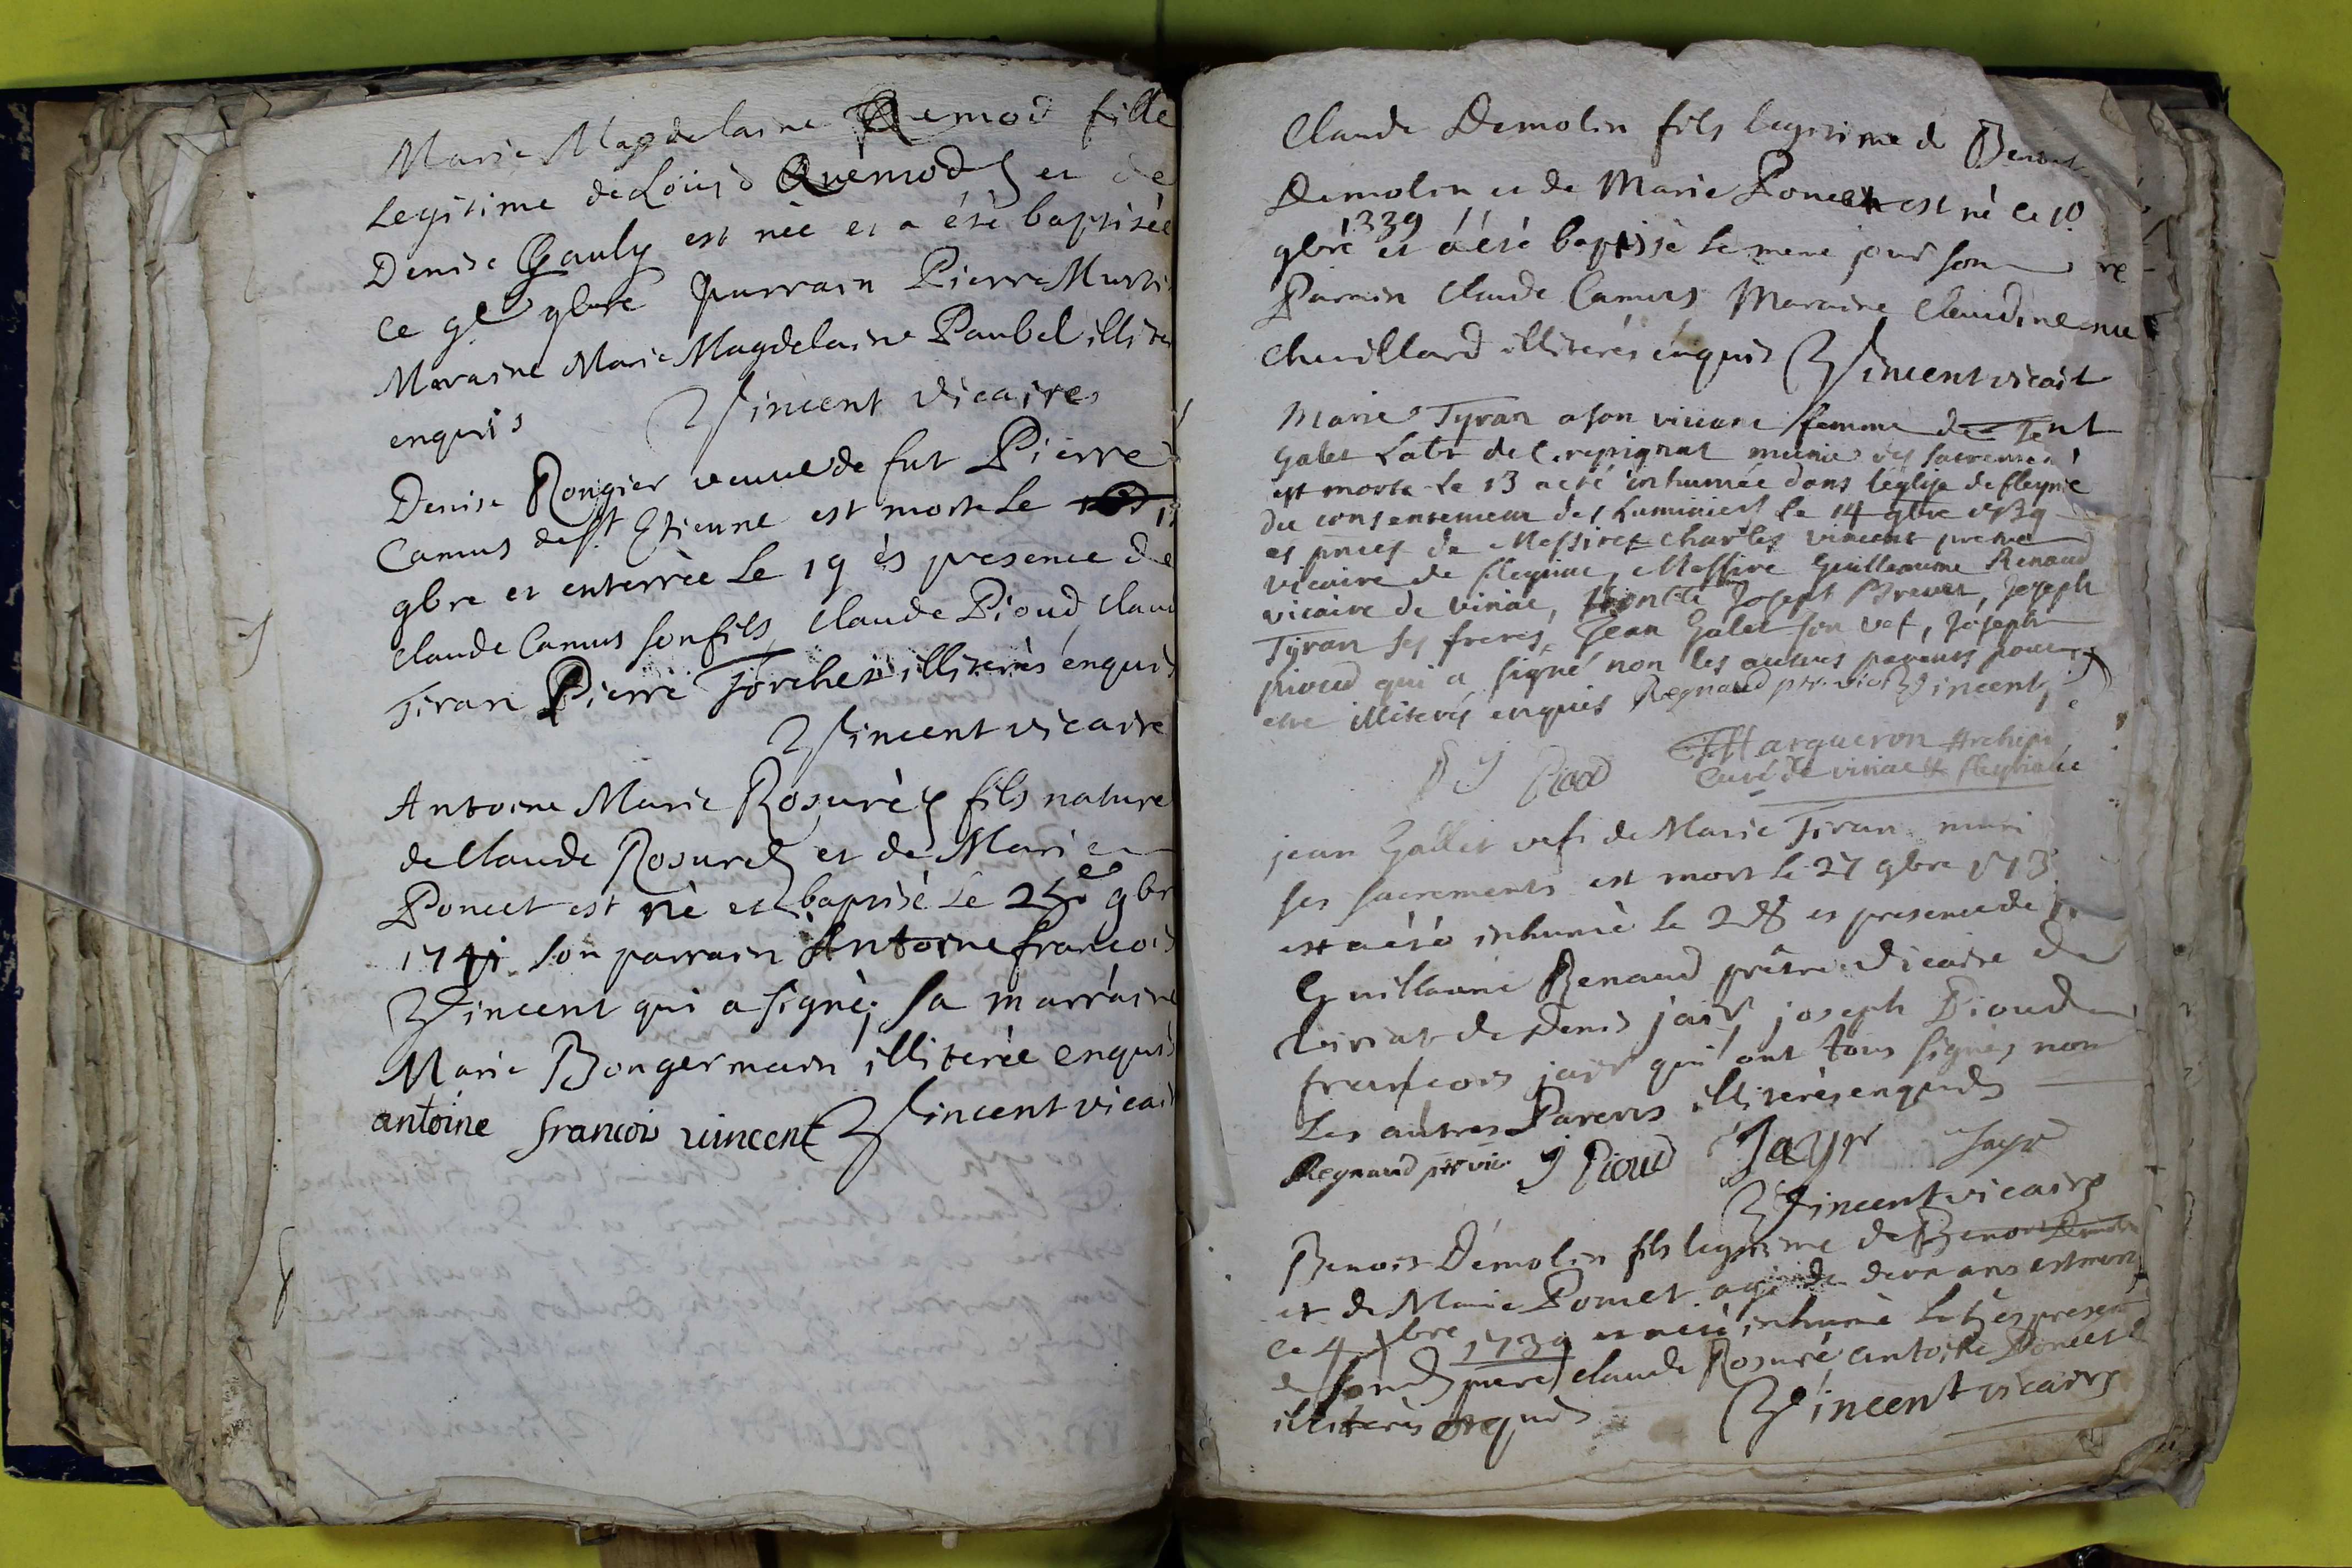 Marie Magdelaine Quemod fille
Legitime de Loüis Quemod et de
Denise Gauly est née et a été baptisée
ce 9e 9bre parrain Pierre
Maraine Marie Magdelaine Paubel illite
enquis Vincent vicaire
Denise Rongier veuve de fut Pierre
Camus de st Etienne est morte le
9bre et enterrée le 19 ès presence de
Claude Camus son fils, Claude Pioud, Clau
Tiran Pierre illiterés enquis
Vincent vicaire
Antoine Marie Rosuré fils nature
de Claude Rosure et de Marie
Poncet est né et baptisé le 25e 9br
1741 son parrain Antoine francois
Vincent qui a signé, sa marraine
Marie Bongermain illiterée enquis
antoine francois vincent Vincent vicai
Claude Demolin fils legitime de Benoit
Demolin et de Marie Poncet est né le 10
9bre 1339 et a été baptisé le meme jour son
Parrain Claude Camus Maraine Claudine
Chevillard illiterés enquis Vincent vicair
Marie Tyran a son vivant femme de
Galet Labr de Crepignat munie des sacremen
est morte le 13 a eté inhumée dans l'église de fleyrie
du consentement des Luminiers le 14 9bre 1739
es pnces de Messires Charles vincent pretre
vicaire de fleyriac, Messire Guillaume Renaud
vicaire de viriac, Joseph Brevet, Joseph
Tyran ses freres, Jean Galet son vef, Joseph
pioud qui a signé non les autres parents pour
etre illiterés enquis Regnaud ptr. vic. Vincent
J Pioud Marqueron Archip
Curé de viriac et fleyriac
jean Gallet vefs de Marie Tiran muni
ses sacrements est mort le 27 9bre 173
et a été inhumé le 28 es presence de
Guillaume Renaud prêtre vicaire de
viriat de Denis jair, joseph Pioud
francois jair qui ont tous signés non
Les autres Parens illiterés enquis
Regnaud ptr vic. J Pioud Jayr Jayr
Vincent vicaire
Benoit Démolin fils legitime de Benoit Demolin
et de Marie Poncet agé de deux ans est mort
ce 4 Xbre 1739 et a eté inhumé le 5 es presen
de son père, Claude Rosuré, antoine Poncet
illiterés enquis Vincent vicaire